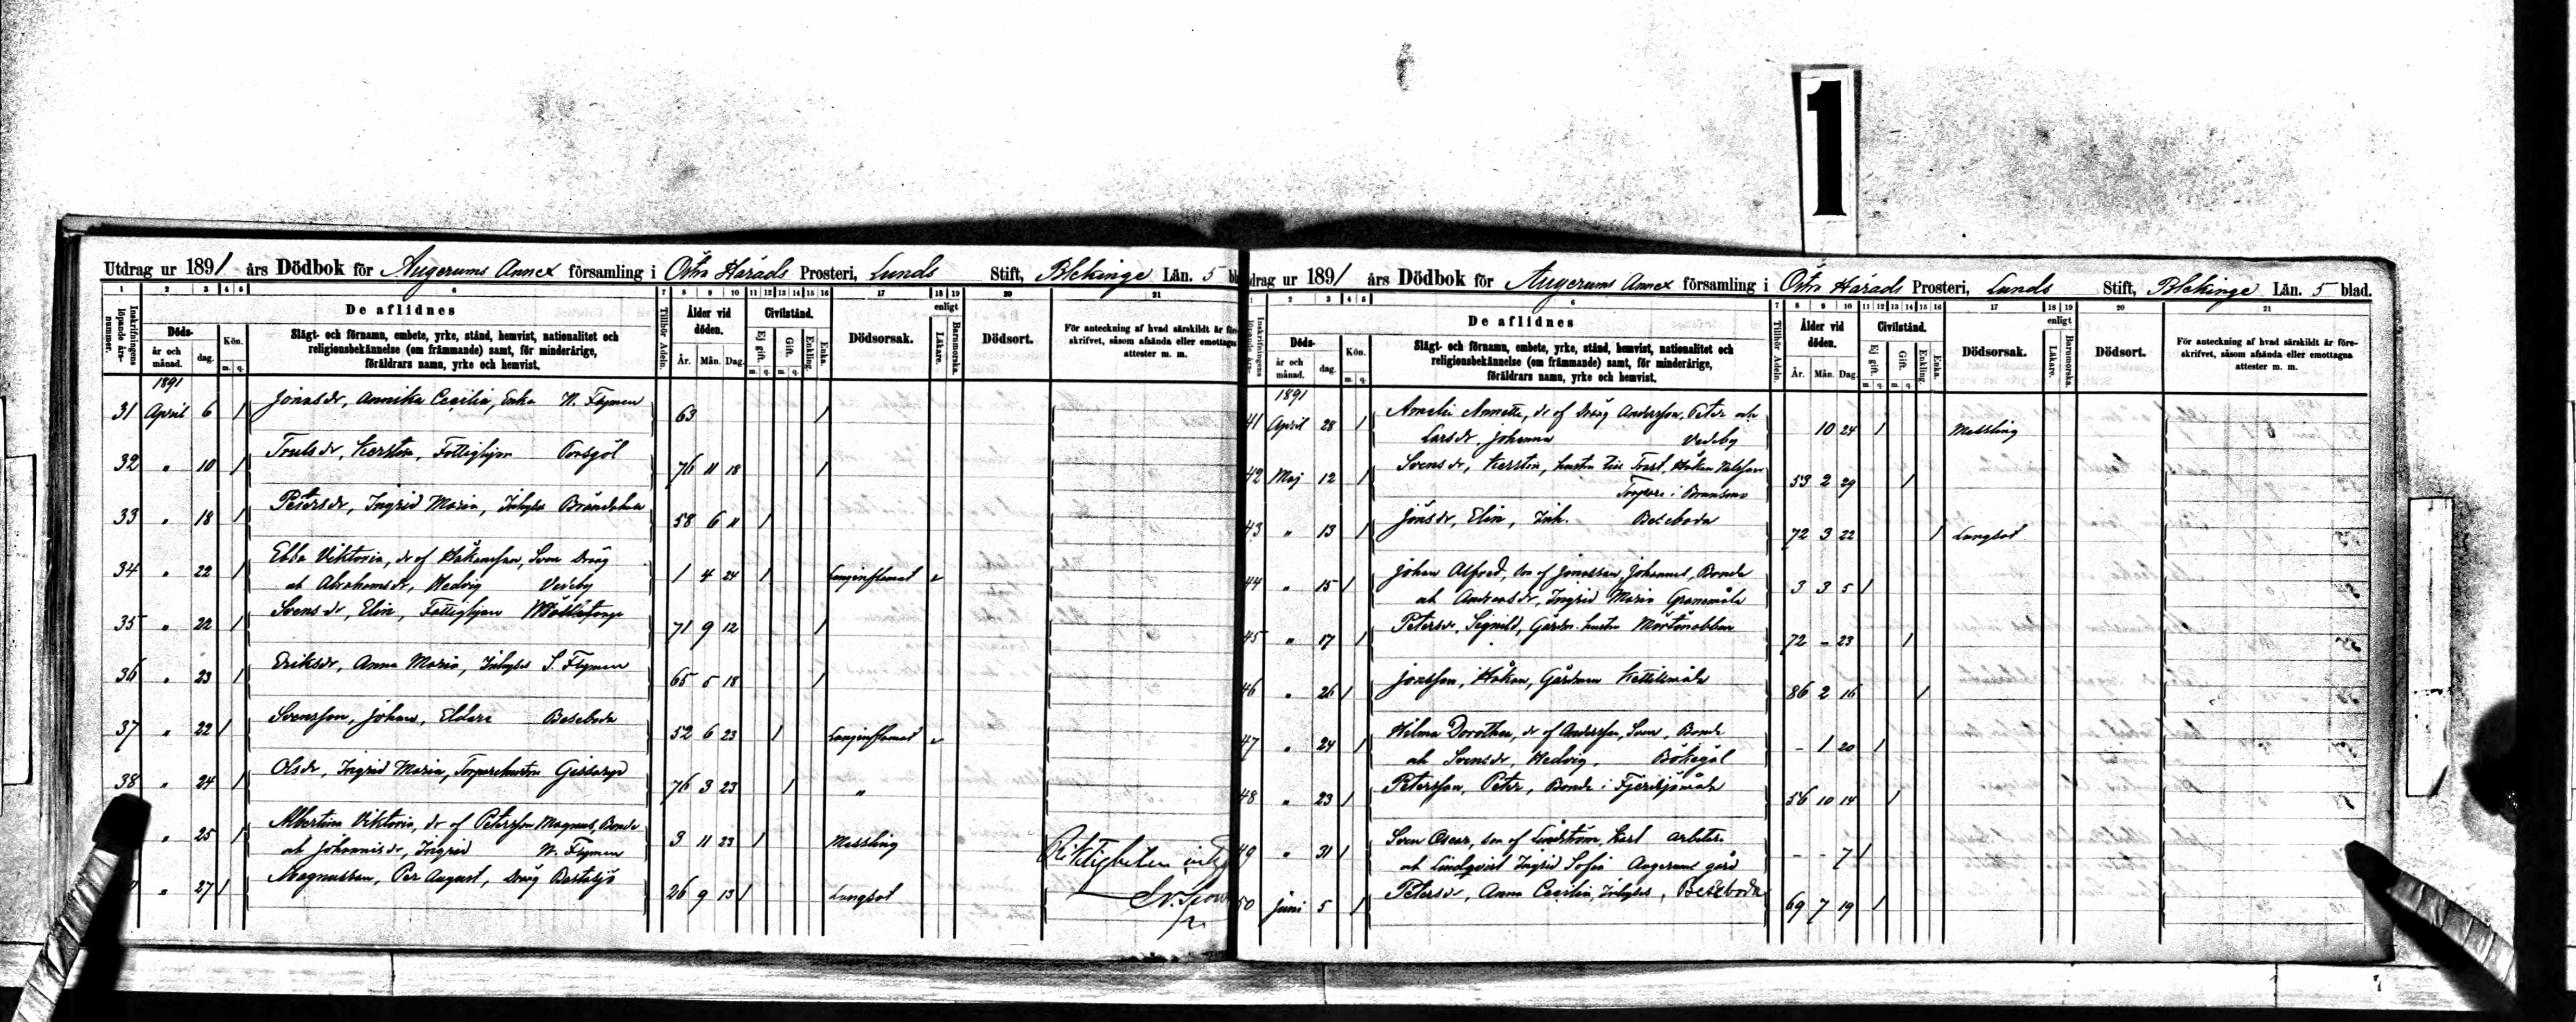 1
Utdrag ur 1891 års Dödbok för Augerums Annex församling i Östra Härads Prosteri, Lunds Stift, Blekinge Län. 5
1 2 3 4 5 6 7 8 9 10 11 12 13 14 15 16 17 18 19 20 21
Inskrifningens löpande års-nummer.
Döds-
år och månad.
dag.
Kön.
m. q.
De aflidnes
Slägt- och förnamn, embete, yrke, stånd, hemvist, nationalitet och
religionsbekännelse (om främmande) samt, för minderårige,
föräldrars namn, yrke och hemvist.
Tillhör Adeln.
Ålder vid döden.
År. Mån. Dag.
Civilstånd.
Ej gift. Gift. Enkling. Enka.
m. q. m. q.
Dödsorsak.
enligt
Läkare. Barnmorska.
Dödsort.
För anteckning af hvad särskildt är
skrifvet, såsom afsända eller emottagna
attester m. m.
1891
31 April 6 1 Jonasdr, Annika Cecilia, Enka N. Flymen 63 1
32 " 10 1 Trulsdr, Kerstin, Fattighjon 76 11 18 1
33 " 18 1 Petersdr, Ingrid Maria, Inhyses 58 6 11 1
34 " 22 1 Ebba Viktoria, dr af Håkansson, Sven Dräng
och Abrahamsdr, Hedvig Vedeby 1 4 24 1 Lunginflamat v
35 " 22 1 Svensdr, Elin, Fattighjon 71 9 12 1
36 " 23 1 Eriksdr, Anna Maria, Inhyses S. Flymen 65 5 18 1
37 " 22 1 Svensson, Johan, Eldare Bäseboda 52 6 23 1 Lunginflamat v
38 " 24 1 Olsdr, Ingrid Maria, Torparehustru 76 3 23 1 "
" 25 1 Albertina Viktoria, dr af Petersson Magnus, Bonde
och Johannisdr, Ingrid N. Flymen 3 11 23 1 Messling
" 27 1 Magnusson, Per August, Dräng Bastasjö 26 9 13 1 Lungsot
Riktigheten
Utdrag ur 1891 års Dödbok för Augerums Annex församling i Östra Härads Prosteri, Lunds Stift, Blekinge Län. 5 blad.
1 2 3 4 5 6 7 8 9 10 11 12 13 14 15 16 17 18 19 20 21
Döds-
år och månad.
dag.
Kön.
m. q.
De aflidnes
Slägt- och förnamn, embete, yrke, stånd, hemvist, nationalitet och
religionsbekännelse (om främmande) samt, för minderårige,
föräldrars namn, yrke och hemvist.
Tillhör Adeln.
Ålder vid döden.
År. Mån. Dag.
Civilstånd.
Ej gift. Gift. Enkling. Enka.
m. q. m. q.
Dödsorsak.
enligt
Läkare. Barnmorska.
Dödsort.
För anteckning af hvad särskildt är före-
skrifvet, såsom afsända eller emottagna
attester m. m.
1891
41 April 28 1 Amelie Annette, dr af Dräng Andersson, Peter och
Larsdr, Johanna Vedeby 10 24 1 Messling
42 Maj 12 1 Svensdr, Kerstin, hustru Håkan Nilsson
Torpare i 53 2 29 1
43 " 13 1 Jönsdr, Elin, Inh. Bäseboda 72 3 22 1 Lungsot
44 " 15 1 Johan Alfred, son af Jonasson, Johannes, Bonde
och Andreasdr, Ingrid Maria Granemåla 3 3 5 1
45 " 17 1 Petersdr, Signild, Gårdm. hustru Mörtönabben 72 - 23 1
46 " 26 1 Jonsson, Håkan, Gårdman Kettilsmåla 86 2 16 1
47 " 24 1 Hilma Dorothea, dr af Andersson, Sven, Bonde
och Svensdr, Hedvig, Bökegöl - 1 20 1
48 " 23 1 Petersson, Peter, Bonde i Fjerdsjömåla 56 10 14 1
49 " 31 1 Sven Oscar, son af Lindström, Karl arbetar.
och Lindqvist Ingrid Sofia Augerums gård - - 7 1
50 Juni 5 1 Petersdr, Anna Cecilia, Inhyses, Bäseboda 69 7 19 1